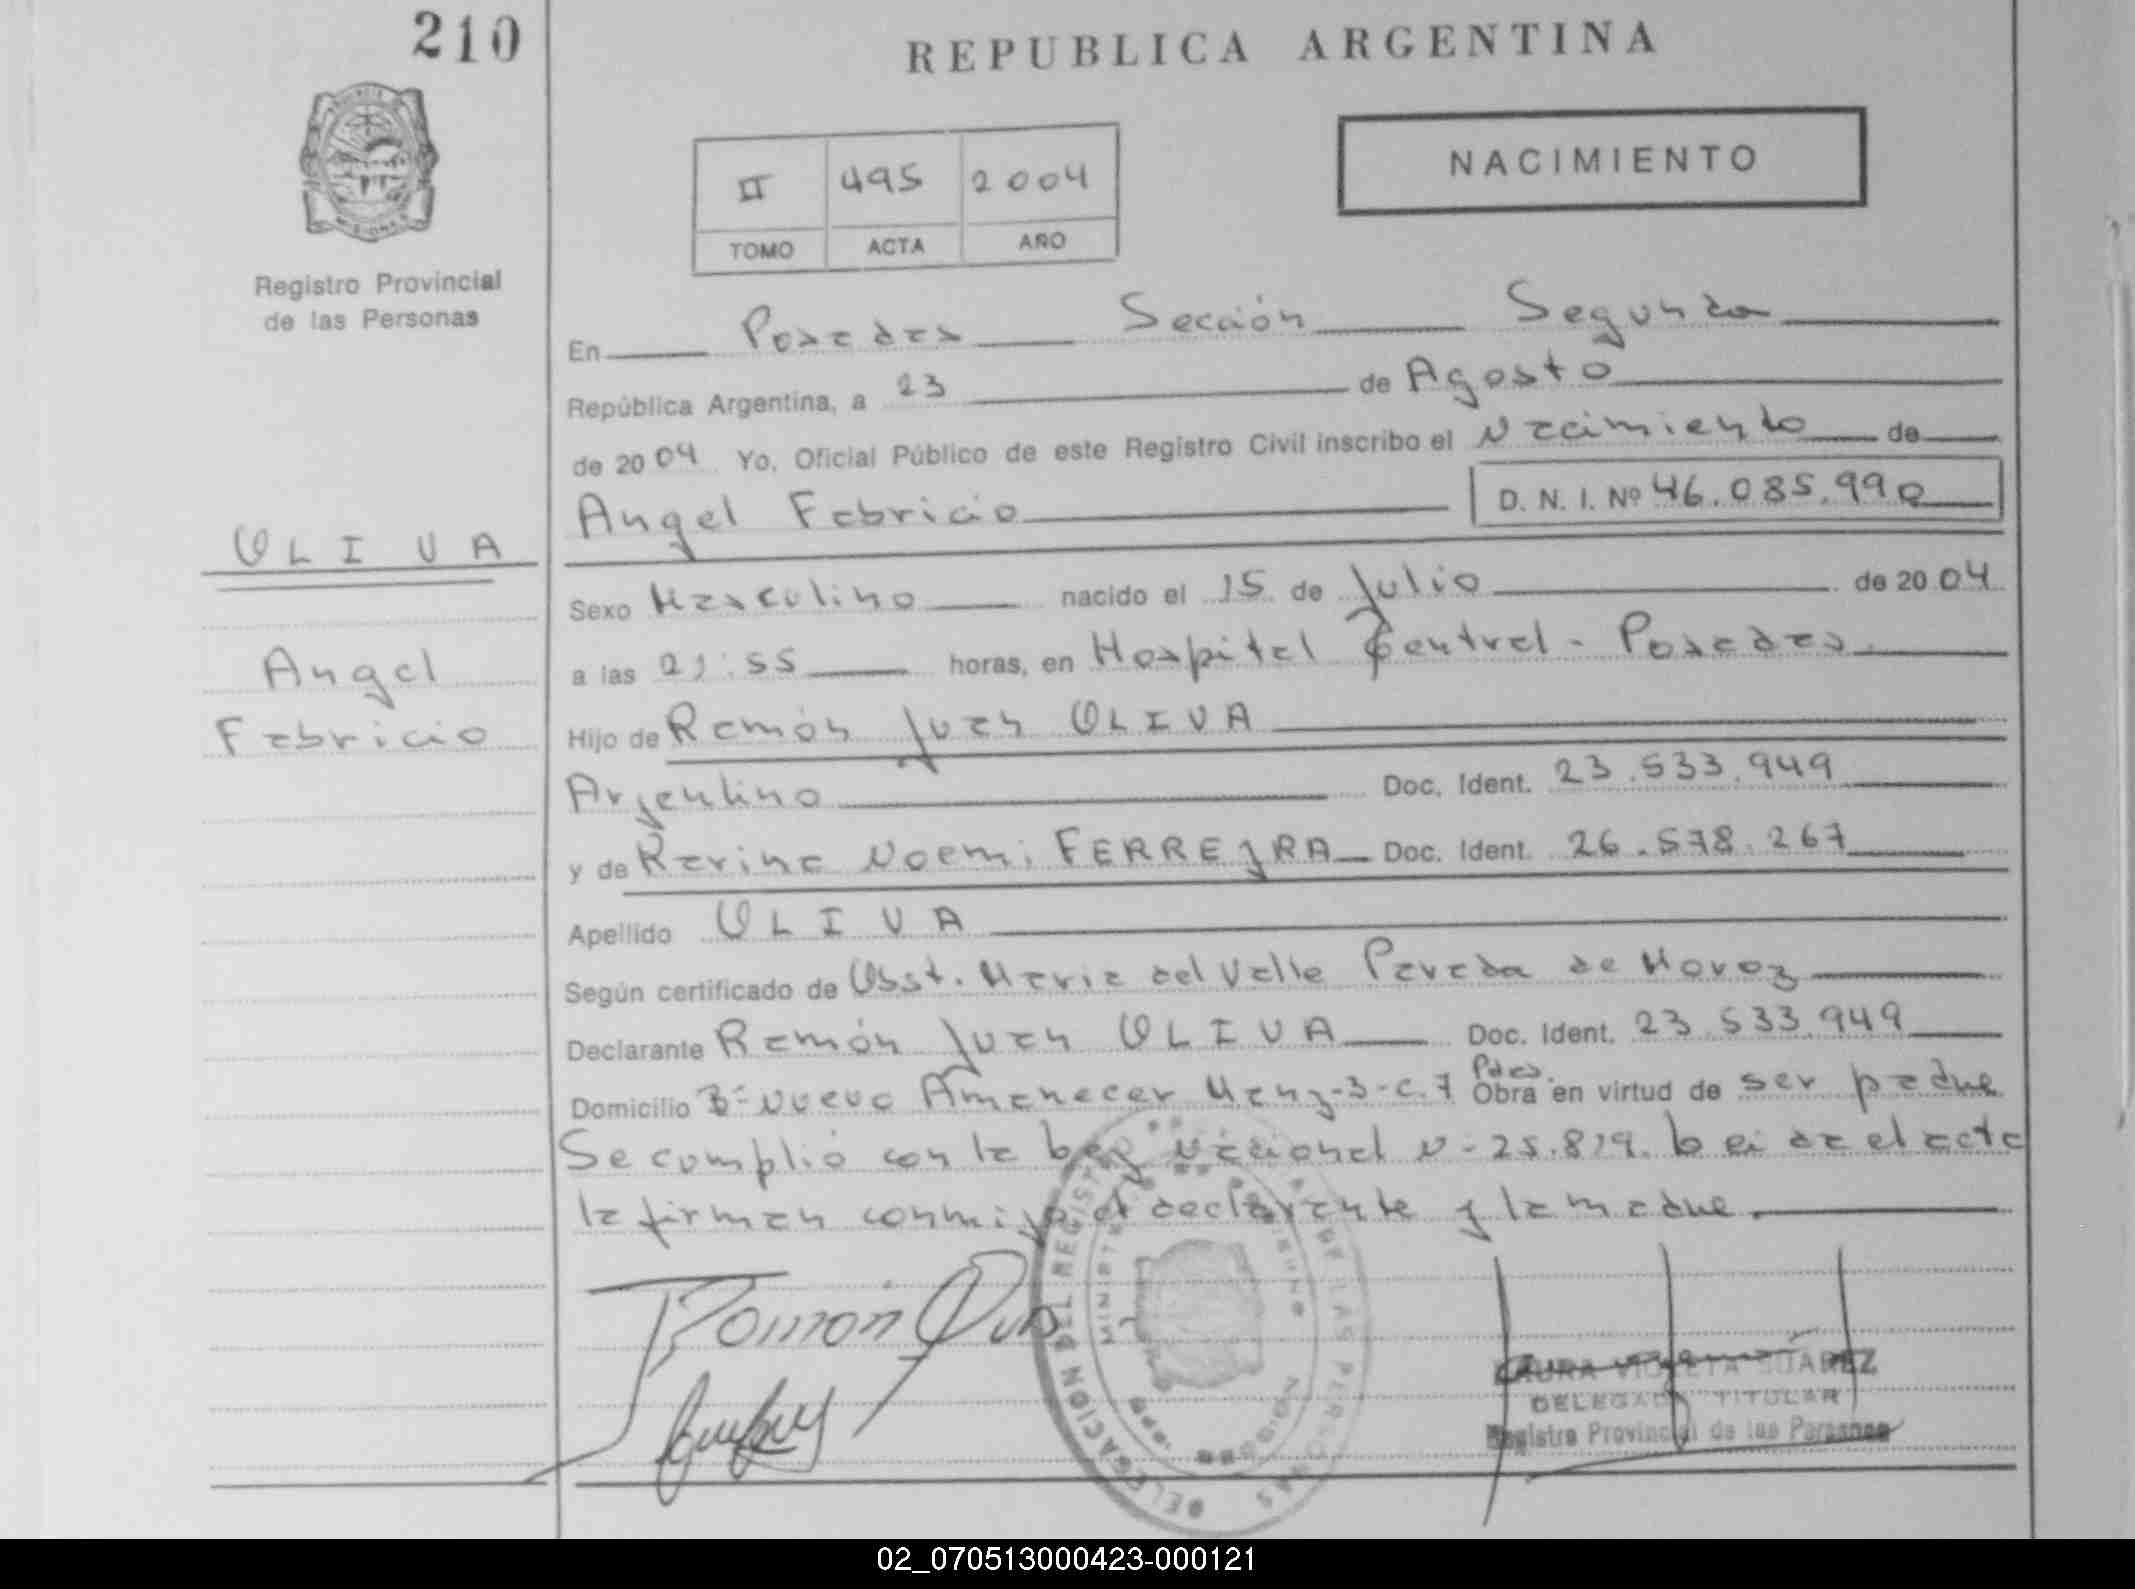 210
REPUBLICA ARGENTINA
NACIMIENTO
II 495 2004
TOMO ACTA AÑO
Registro Provincial
de las Personas
En Posadas Sección Segunda
República Argentina, a 23 de Agosto
de 2004 Yo, Oficial Público de este Registro Civil inscribo el Nacimiento de
Angel Fabricio D. N. I. Nº 46.085.990
OLIVA
Sexo Masculino nacido el 15 de Julio de 2004
Angel
a las 21:55 horas, en Hospital Central - Posadas.
Fabricio
Hijo de Ramón Juan OLIVA
Argentino Doc. Ident. 23.533.949
y de Karina Noemi FERREYRA Doc. Ident. 26.578.267
Apellido OLIVA
Según certificado de Obst. Maria del Valle Pereda de
Declarante Ramón Juan OLIVA Doc. Ident. 23.533.949
Domicilio Bº Nuevo Amanecer Manz-3-c.7 Pdas. Obra en virtud de ser padre
Se cumplió con la Ley Nacional N-25.819. Leida el acta
la firman conmigo el declarante y la madre.
Ramón
DELEGACION DEL REGISTRO DE LAS PERSONAS
LAURA VIOLETA SUAREZ
DELEGADA TITULAR
Registro Provincial de las Personas
02_070513000423-000121